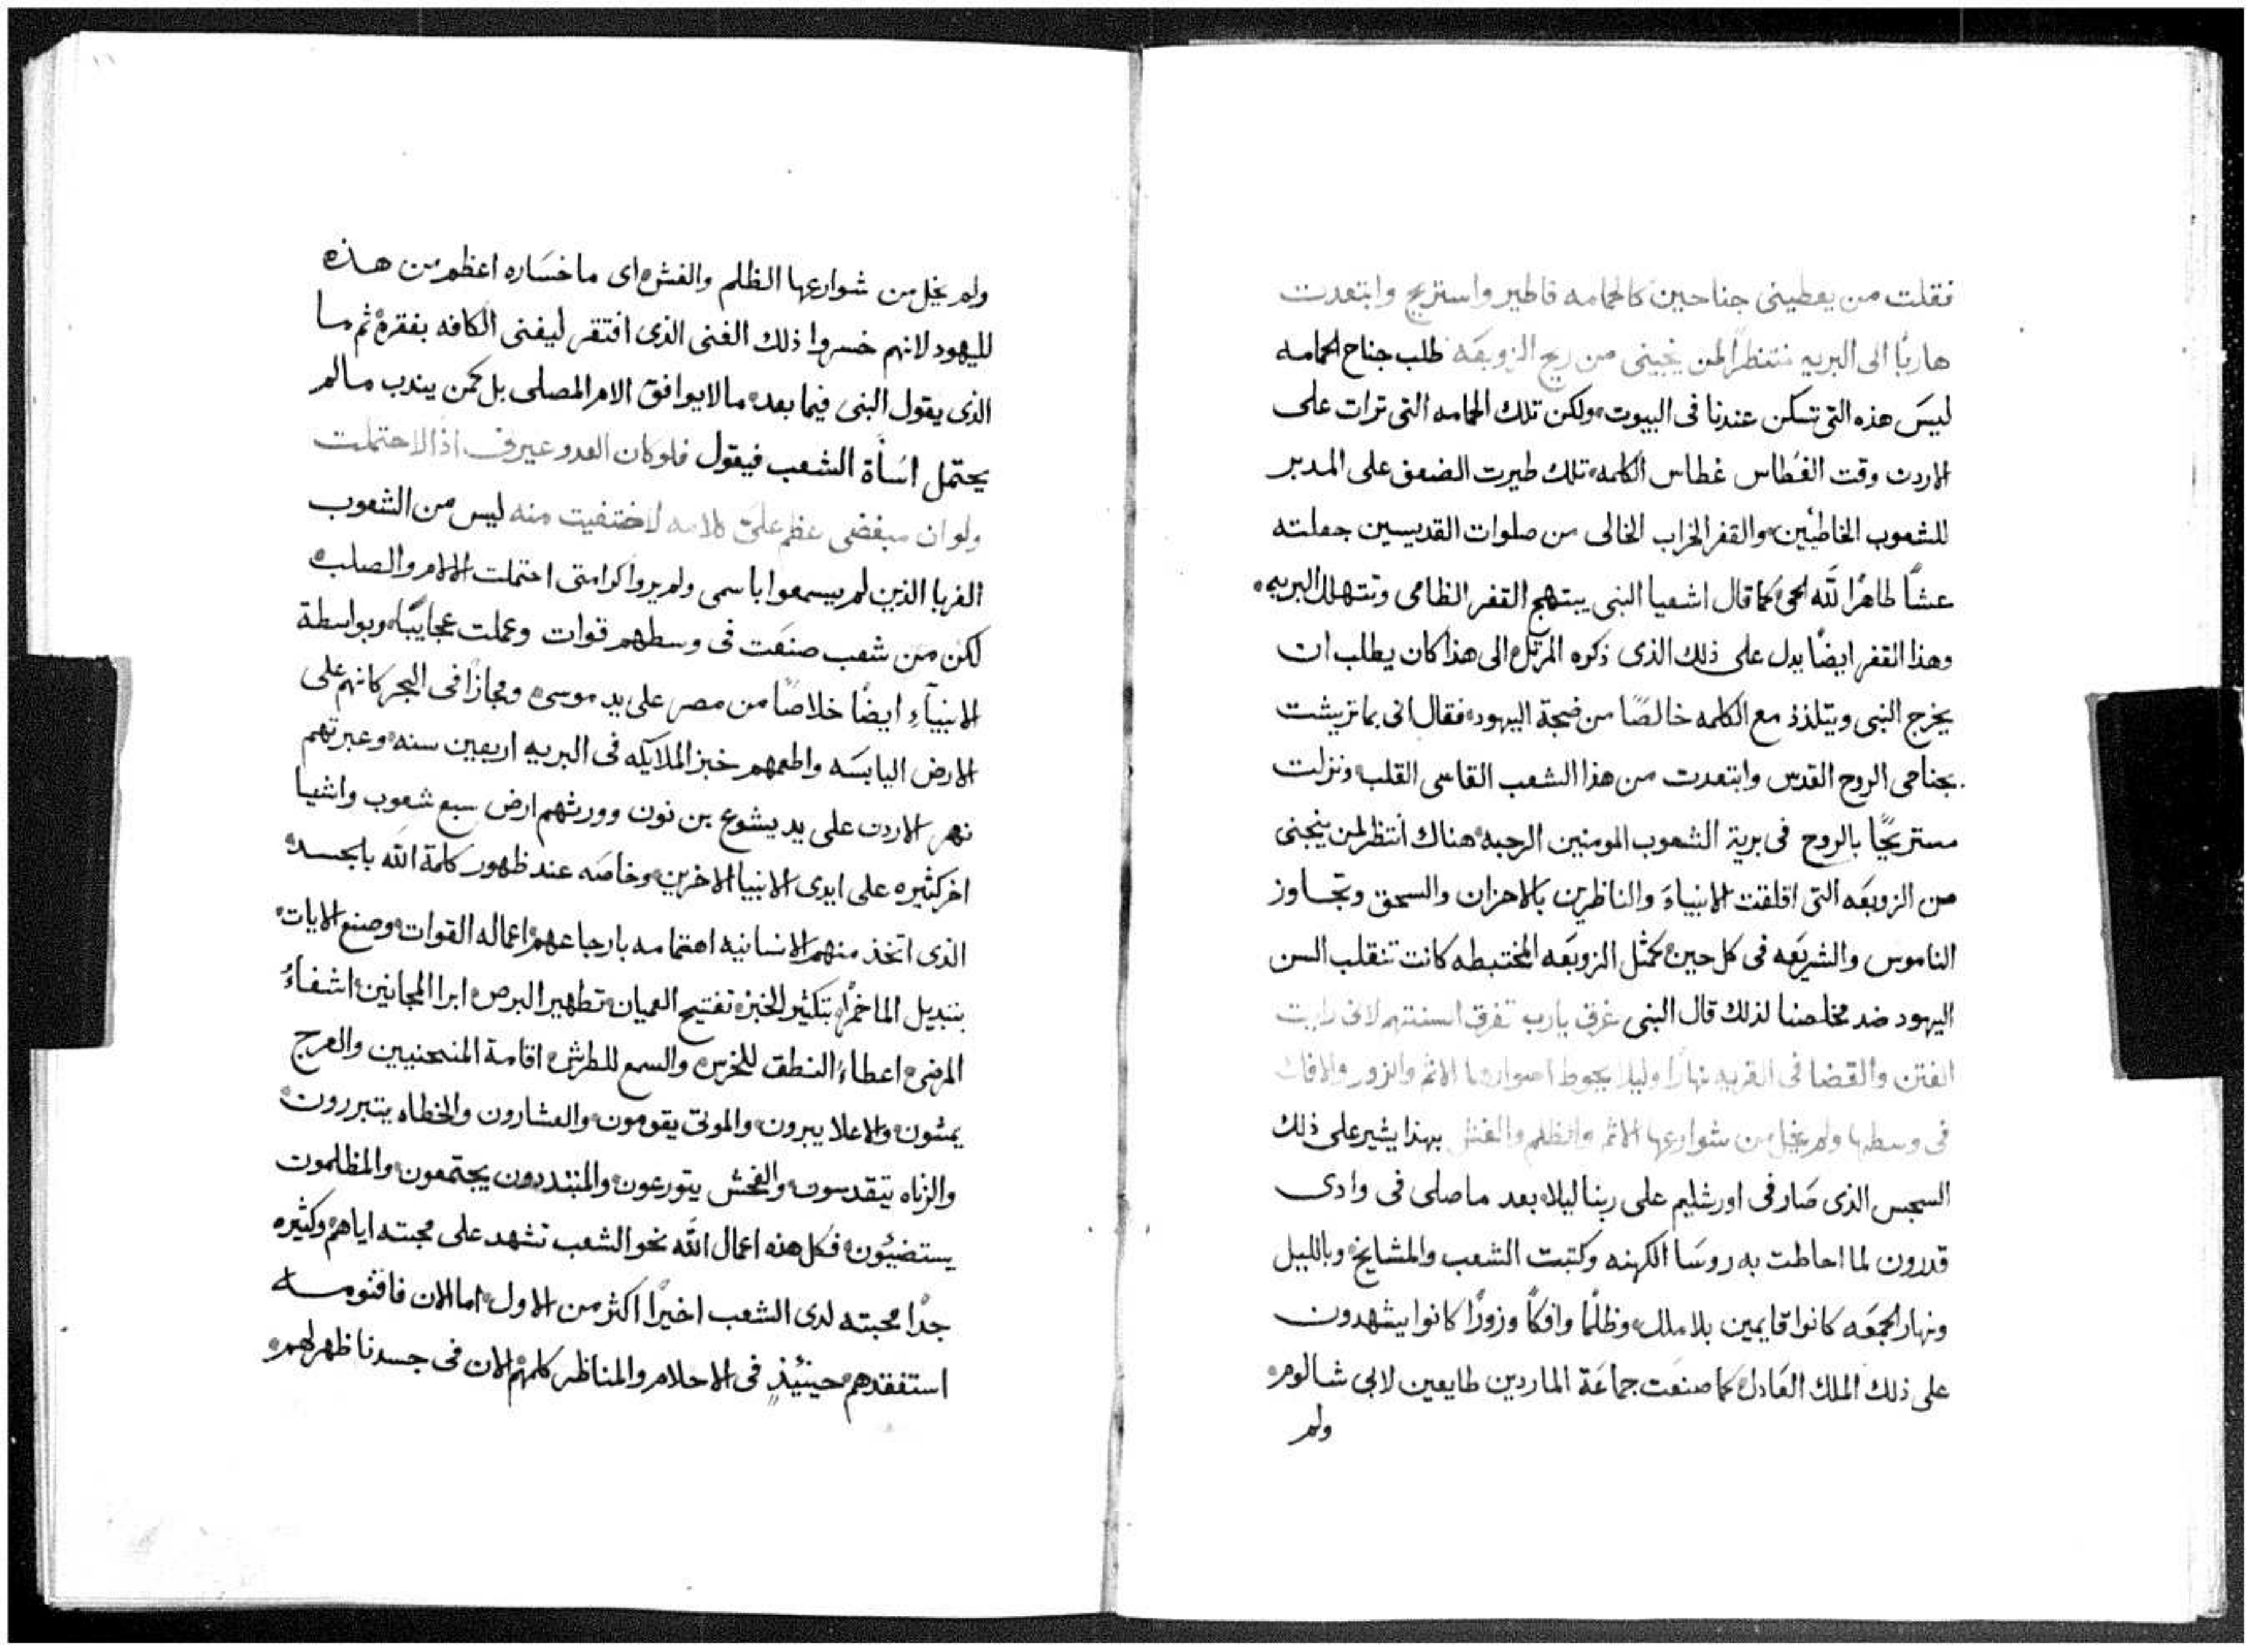 فقلت من يعطينى جناحين كالحمامه فاطير واستريح وابتعدت
هاربًا الى البريه منتظرًا لمن ينجينى من ريح الزوبعَه طلب جناح الحمامه
ليسَ هذه التى تسكن عندنا فى البيوت ولكن تلك الحمامه التى ترات على
الاردن وقت الغطاس غطاس الكلمه تلك طيرت الضعف على المدبر
للشعوب الخاطيين والقفر الخراب الخالى من صلوات القديسين جعلته
عشًا طاهرًا لله الحى كما قال اشعيا النبى يبتهج القفر الظامى وتتهلل البريه
وهذا القفر ايضًا يدل على ذلك الذى ذكره المرتل الى هذا كان يطلب ان
يخرج النبى ويتلذذ مع الكلمه خالصًا من ضجة اليهود فقال انى بما تريشت
بجناحى الروح القدس وابتعدت من هذا الشعب القاسى القلب ونزلت
مستريحًا بالروح فى برية الشعوب المومنين الرحبه هناك انتظر لمن ينجنى
من الزوبعَه التى اقلقت الانبياءَ والناظرين بالاحزان والسحق وتجاوز
الناموس والشريعَه فى كل حين كمثل الزوبعَه المختبطه كانت تنقلب السن
اليهود ضد مخلصنا لذلك قال النبى غرق يارب تفرق السنتهم لانى رايت
الفتن والقضا فى القريه نهارًا وليلا يحوط اسوارها الاثم والزور والافك
فى وسطها ولم يخل من شوارعها الاثم والظلم والغش بهذا يشير على ذلك
السجس الذى صَار فى اورشليم على ربنا ليلا بعد ما صلى فى وادى
قدرون لما احاطت به روسَا الكهنه وكتبت الشعب والمشايخ وبالليل
ونهار الجمعَه كانوا قايمين بلا ملل وظلمًا وافكًا وزورًا كانوا يشهدون
على ذلك الملك العَادل كما صنعَت جماعَة الماردين طايعين لابى شالوم
ولم
ولم يخل من شوارعها الظلم والغش اى ما خسَاره اعظم من هذه
لليهود لانهم خسروا ذلك الغنى الذى افتقر ليغنى الكافه بفقره ثم ما
الذى يقول النبى فيما بعد ما لا يوافق الامر المصلى بل كمن يندب ما لم
يحتمل اسَأة الشعب فيقول فلو كان العدو عيرنى اذًا لاحتملت
ولو ان مبغضى عظم علىَّ كلامه لاختفيت منه ليس من الشعوب
الغربا الذين لم يسمعوا باسمى ولم يروا كرامتى احتملت الالام والصلب
لكن من شعب صنعَت فى وسطهم قوات وعملت عجايبًا وبواسطة
الانبيآءِ ايضًا خلاصًا من مصر على يد موسى ومجازًا فى البحر كانهم على
الارض اليابسَه واطعمهم خبز الملايكه فى البريه اربعين سنه وعبرتهم
نهر الاردن على يد يشوع بن نون وورثهم ارض سبع شعوب واشيا
اخر كثيره على ايدى الانبيا الاخرين وخاصَه عند ظهور كلمة الله بالجسد
الذى اتخذ منهم الانسانيه اهتمامه بارجاعهم اعماله القوات وصنع الايات
بتبديل الما خمرًا بتكثير الخبز تفتيح العميان تطهير البرص ابرا المجانين اشفاءُ
المرضى اعطاءُ النطق للخرس والسمع للطرش اقامة المنحنيين والعرج
يمشون والاعلا يبرون والموتى يقومون والعشارون والخطاه يتبررون
والزناه يتقدسون والفحش يتورعون والمتبددون يجتمعون والمظلمون
يستضيئون فكل هذه اعمال الله نحو الشعب تشهد على محبته اياهم وكثيره
جدًا محبته لدى الشعب اخيرًا اكثر من الاول اما الان فاقنومه
استفقدهم حينيئذٍ فى الاحلام والمناظر كلمهم الان فى جسدنا ظهر لهم